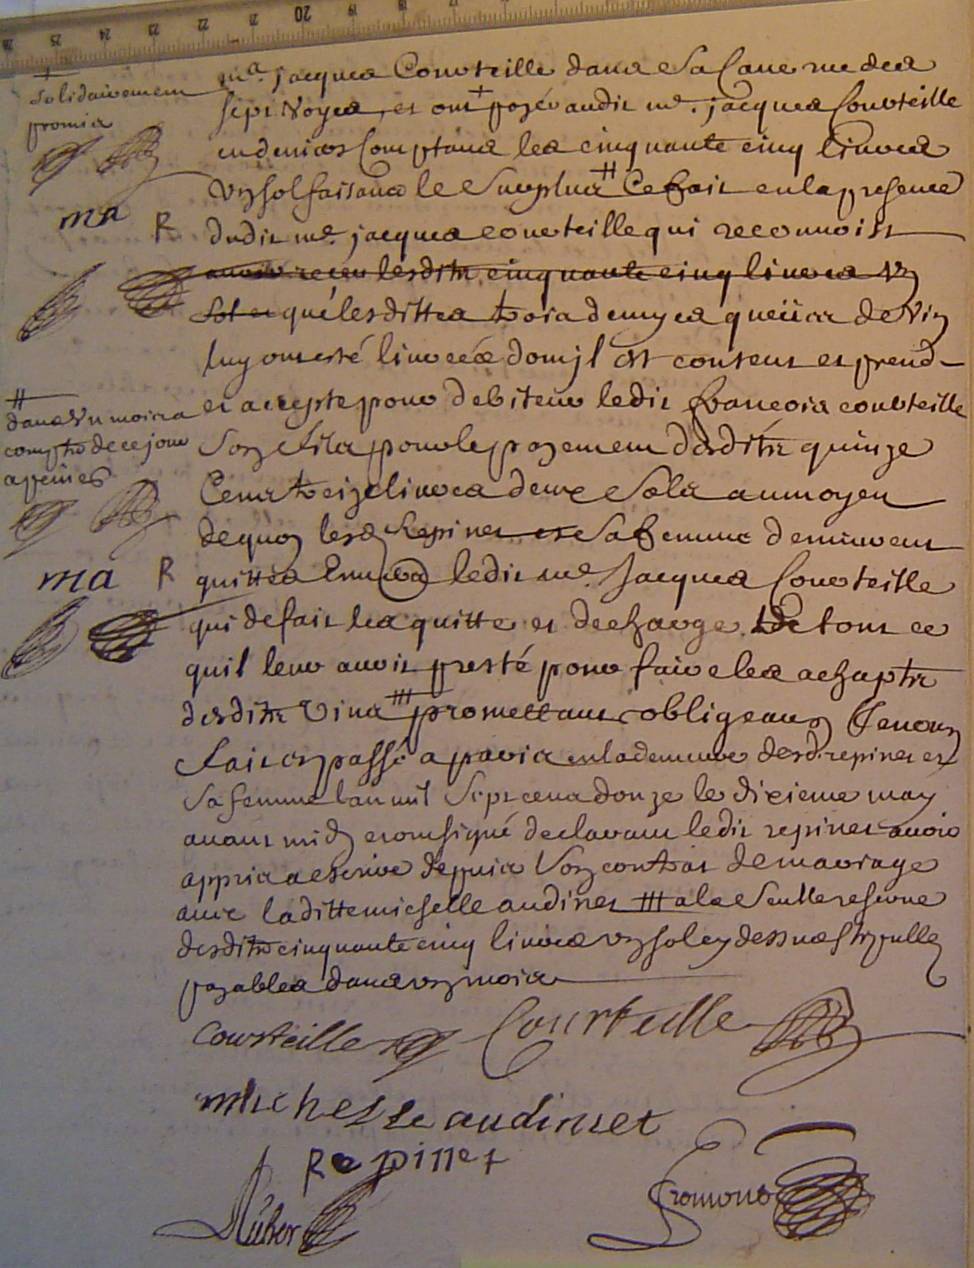 20
solidairement
promis
me. jacques Courteille dans sa Cave rue des
sept Voyes, et ont + payé audit me. jacques Courteille
en deniers Comptans les cinquante cinq livres
un sol faisans le surplus # Ce fait en la presence
ma R dudit me. jacques courteille qui reconnoist
avoir receu lesdits cinquante cinq livres un
sol et que lesdittes trois demyes queües de Vin
luy ont esté livrées dont jl est content et prend
# dans un mois a
compter de ce jour
a peines
et accepte pour debiteur ledit francois courteille
son fils pour le payement desdits quinze
Cens treize livres deux sols au moyen
de quoy lesd. Repinet et sa femme demeurent
ma R quittes Envers ledit me. Jacques Courteille
qui de fait les quitte et descharge de tout ce
quil leur avoit presté pour faire les achapts
desdits Vins ### promettant obligeans Renonc.
fait et passé a paris en la demeure desd. repinet et
sa femme lan mil Sept cens douze le dixieme may
avant midy et ont signé declarant ledit repinet avoir
appris a escrire depuis son contrat de mariage
avec laditte michelle audinet ### a la seulle reserve
desdits cinquante cinq livres un sol cy dessus stipullez
payables dans un mois
Courteille Courteille
michelle audinet
Repinet